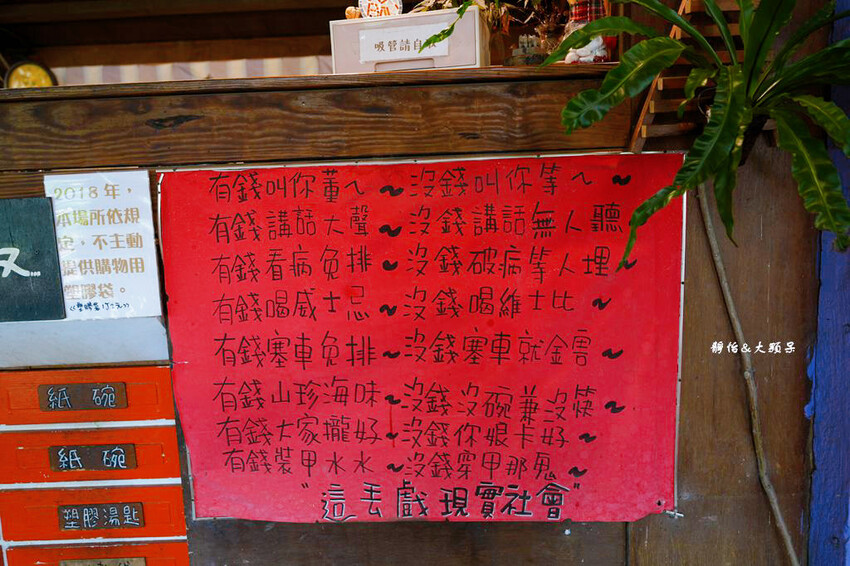 吸管請自
有錢叫你董ㄟ~沒錢叫你等ㄟ~
有錢講話大聲~沒錢講話無人聽
有錢看病免排~沒錢破病等人埋~
有錢喝威士忌~沒錢喝維士比~
有錢塞車免排~沒錢塞車就金害~
有錢山珍海味~沒錢沒碗兼沒筷~
有錢大家攏好~沒錢你娘卡好~
有錢裝甲水水~沒錢穿甲那鬼~
"這丟戲現實社會"
2018年,
本場所依規
定,不主動
提供購物用
塑膠袋。
又...
紙碗
紙碗
塑膠湯匙
靜怡&大顆呆